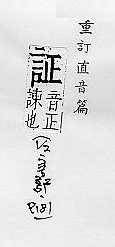 重訂直音篇
証
音正
諫也
P181